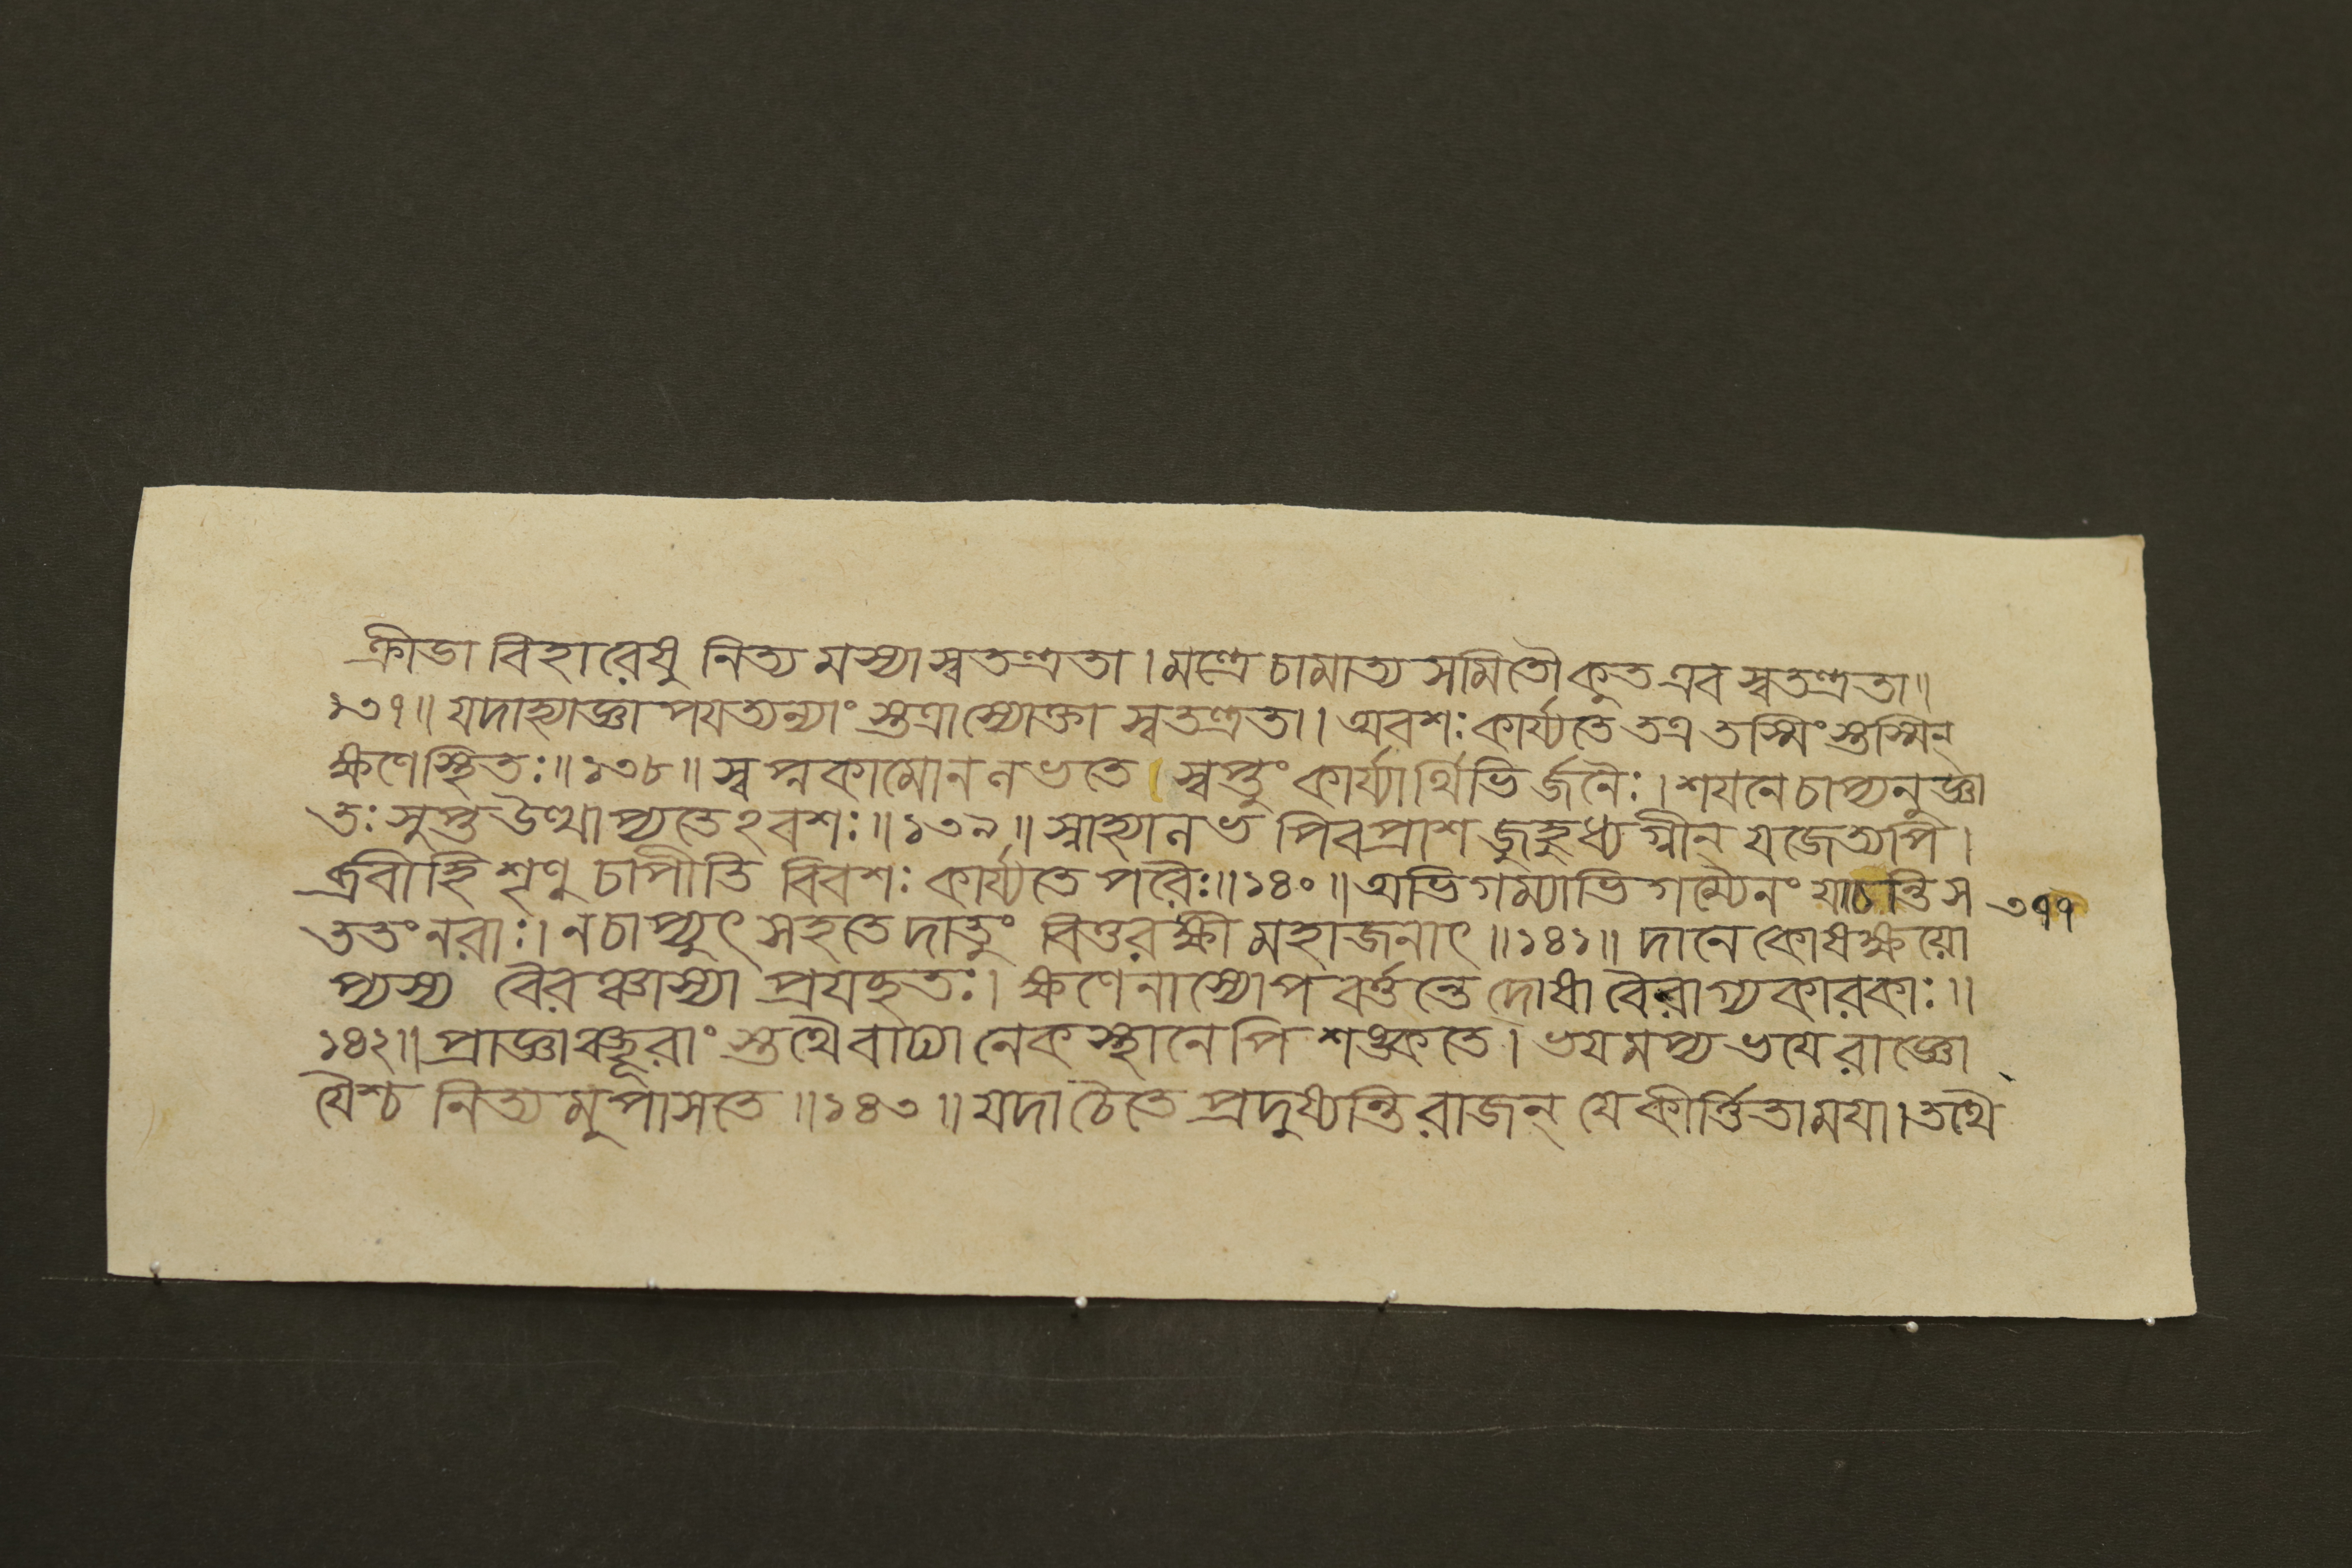 ক্রীডা বিহারেষু নিত্য মস্যাস্বতন্ত্রতা । মন্ত্রে চামাত্য সমিতৌ কুত এব স্বতন্ত্রতা ॥
১৩৭ ॥ যদাহ্যাজ্ঞা পযত্যন্যাং স্তত্রাস্যোক্তা স্বতন্ত্রতা । অবশঃ কার্য্যতে তত্র তস্মিং স্তস্মিন্
ক্ষণে স্থিতঃ ॥ ১৩৮ ॥ স্বপ্নকামো ন নভতে স্বপ্তুং কার্য্যার্থিভি র্জনৈঃ । শযনে চাপ্যনুজ্ঞা
তঃ সুপ্ত উত্থাপ্যতেঽবশঃ ॥ ১৩৯ ॥ স্নাহ্যানভ পিব প্রাশ জুহুধ্যগ্নীন্ যজেত্যপি ।
ব্রবীহি শৃণু চাপীতি বিবশঃ কার্য্যতে পরৈঃ ॥ ১৪০ ॥ অভিগম্যাভি গম্যৈনং যাচন্তি স ৩৭৭
ততং নরাঃ । ন চাপ্যুৎসহতে দাতুং বিত্তরক্ষী মহাজনাৎ ॥ ১৪১ ॥ দানে কোষক্ষযো
প্যস্য বৈরঞ্চাস্যা প্রযচ্ছতঃ । ক্ষণেনাস্যোপ বর্ত্তন্তে দোষা বৈরাগ্য কারকাঃ ॥
১৪২ ॥ প্রাজ্ঞাঞ্ছূরাং স্তথৈবাঢ্যা নেকস্থানেপি শঙ্কতে । ভযমপ্য ভযে রাজ্ঞো
যৈশ্চ নিত্য মুপাসতে ॥ ১৪৩ ॥ যদা চৈতে প্রদুষ্যন্তি রাজন্ যে কীর্ত্তিতা ময়া । তথৈ